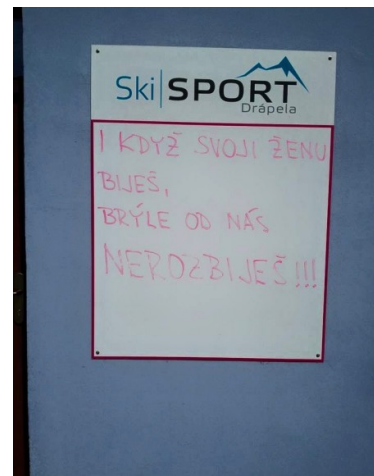 Ski SPORT
Drápela
I KDYŽ SVOJI ŽENU
BIJEŠ,
BRÝLE OD NÁS
NEROZBIJEŠ!!!